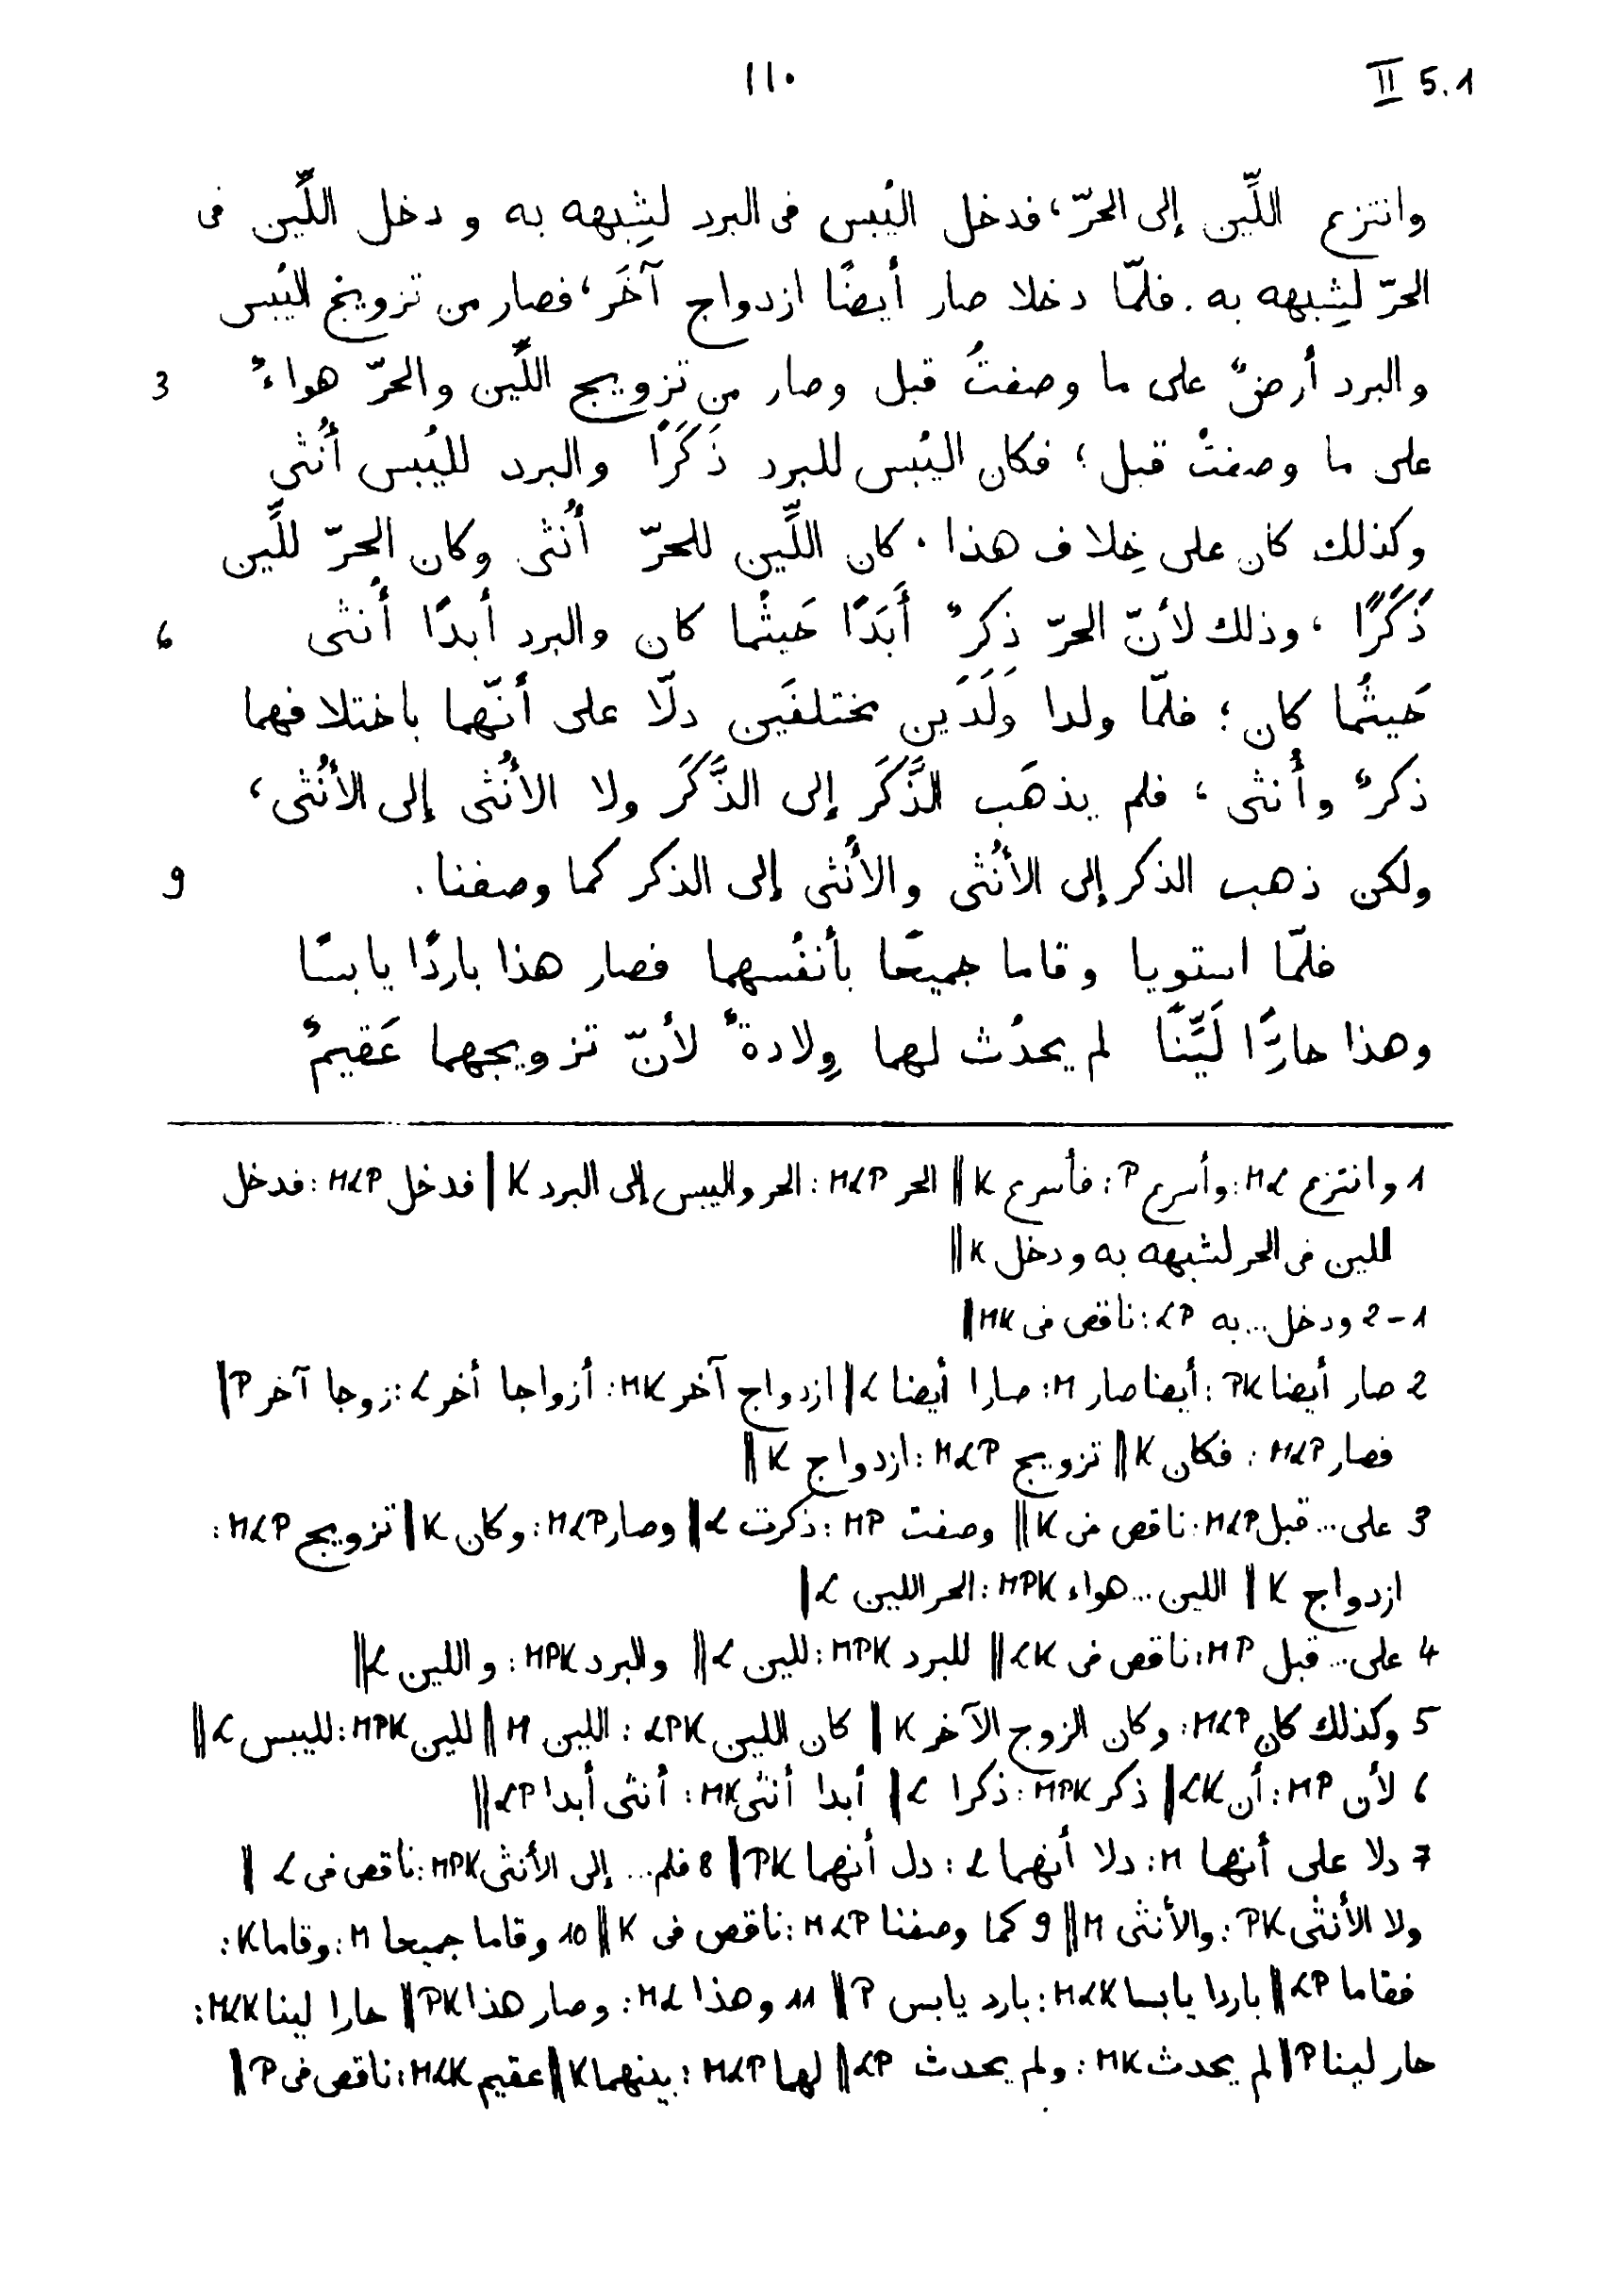 ١١٠ II 5.1
وانتزع اللِّين إلى الحرّ، فدخل اليُبس فى البرد لشِبهه به ودخل اللِّين فى
الحرّ لشِبهه به. فلمّا دخلا صار أيضًا ازدواج آخَر، فصار من تزويج اليُبس
والبرد أرضٌ على ما وصفتُ قبل وصار من تزويج اللِّين والحرّ هواءٌ 3
على ما وصفتُ قبل؛ فكان اليُبس للبرد ذَكَرًا والبرد لليُبس أُنثى
وكذلك كان على خِلاف هذا. كان اللِّين للحرّ أُنثى وكان الحرّ للِّين
ذَكَرًا، وذلك لأنّ الحرّ ذكرٌ أَبَدًا حَيثُما كان والبرد أبدًا أُنثى 6
حَيثُما كان؛ فلمّا ولدا وَلَدَين مختلفَين دلّا على أنّهما باختلافهما
ذكرٌ وأُنثى، فلم يذهَب الذَّكَر إلى الذَّكَر ولا الأُنثى إلى الأُنثى،
ولكن ذهب الذكر إلى الأُنثى والأُنثى إلى الذكر كما وصفنا. 9
فلمّا استويا وقاما جميعًا بأنفُسهما فصار هذا باردًا يابسًا
وهذا حارًّا لَيِّنًا لم يحدُث لهما وِلادةٌ لأنّ تزويجهما عَقيمٌ
1 وانتزع ML: وأسرع P: فأسرع K || الحر MLP: الحر واليبس إلى البرد K | فدخل MLP: فدخل
اللين فى الحر لشبهه به ودخل K ||
1-2 ودخل... به LP: ناقص فى MK |
2 صار أيضا PK: أيضا صار M: صارا أيضا L || ازدواج آخر MK: أزواجا أخر L: زوجا آخر P |
فصار MLP: فكان K || تزويج MLP: ازدواج K ||
3 على... قبل MLP: ناقص فى K || وصفت MP: ذكرت L || وصار MLP: وكان K | تزويج MLP:
ازدواج K || اللين... هواء MPK: الحر اللين L |
4 على... قبل MP: ناقص فى LK || للبرد MPK: للين L || والبرد MPK: واللين L ||
5 وكذلك كان MLP: وكان الزوج الآخر K || كان اللين LPK: اللين M || للين MPK: لليبس L ||
6 لأن MP: أن LK || ذكر MPK: ذكرا L || أبدا أنثى MK: أنثى أبدا LP ||
7 دلا على أنهما M: دلا أنهما L: دل أنهما PK | 8 فلم... إلى الأنثى MPK: ناقص فى L |
ولا الأنثى PK: والأنثى M || 9 كما وصفنا MLP: ناقص فى K || 10 وقاما جميعا M: وقاما K:
فقاما LP || باردا يابسا MLK: بارد يابس P || 11 وهذا ML: وصار هذا PK || حارا لينا MLK:
حار لينا P | لم يحدث MK: ولم يحدث LP || لهما MLP: بينهما K || عقيم MLK: ناقص فى P |